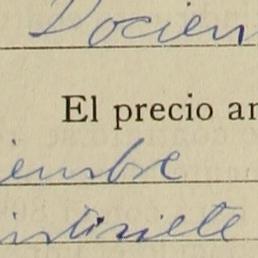 Docien
El precio an
iembre
intisiete